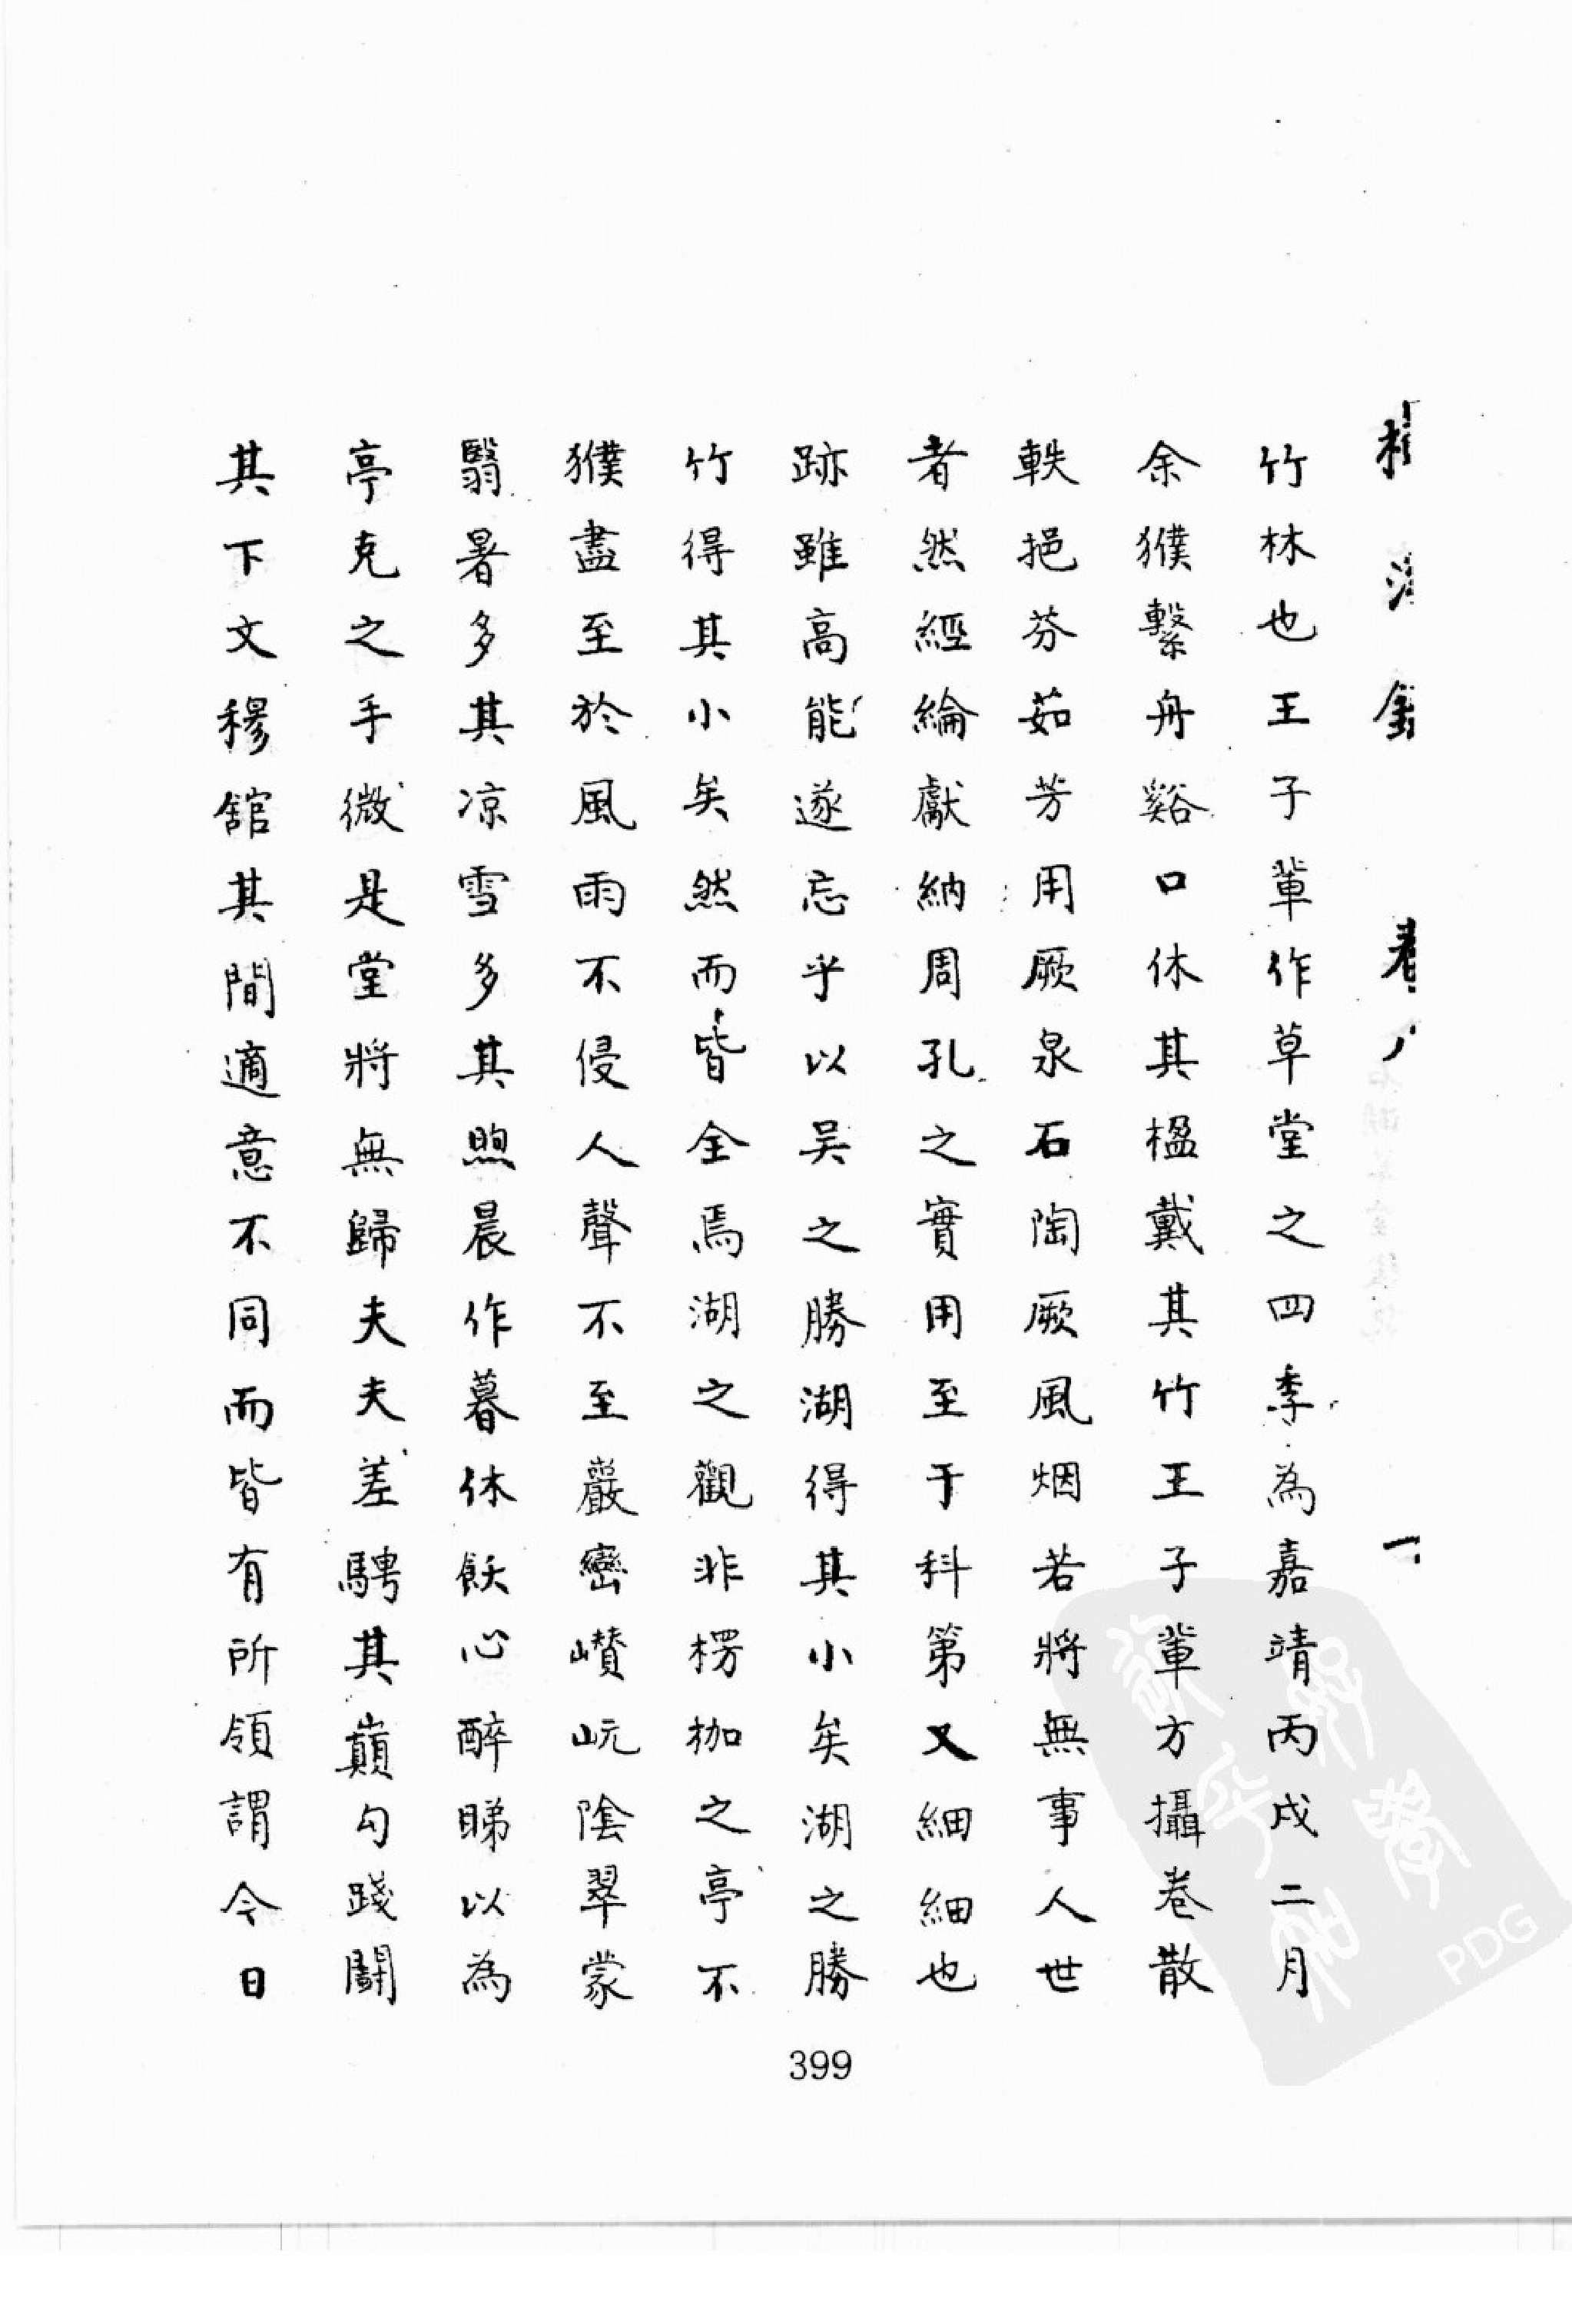 竹林也王子輩作草堂之四季為嘉靖丙戌二月
余獛繫舟谿口休其楹戴其竹王子輩方攝卷散
軼挹芬茹芳用厥泉石陶厥風烟若將無事人世
者然經綸獻納周孔之實用至于科第又細細也
跡雖高能遂忘乎以吴之勝湖得其小矣湖之勝
竹得其小矣然而皆全焉湖之觀非楞枷之亭不
獛盡至於風雨不侵人聲不至巖巒巑岏陰翠蒙
翳暑多其凉雪多其煦晨作暮休飫心醉睇以為
亭克之手微是堂將無歸夫夫差騁其巔勾踐鬬
其下文穆舘其間適意不同而皆有所領謂今日
399
PDG